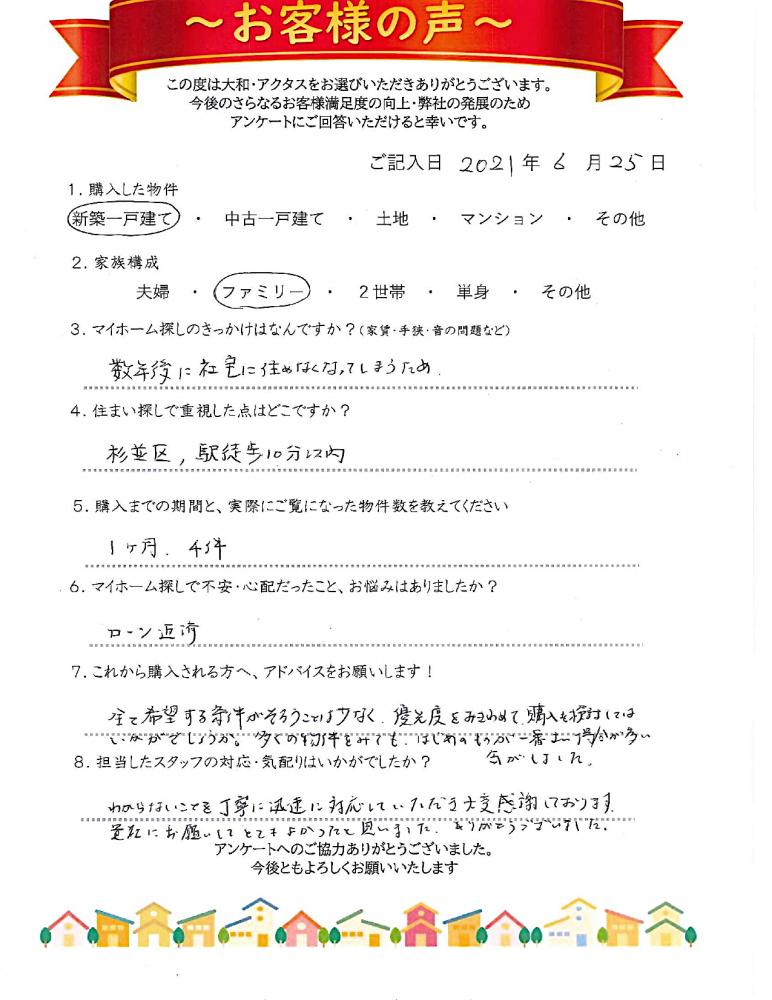 ～お客様の声～
この度は大和・アクタスをお選びいただきありがとうございます。
今後のさらなるお客様満足度の向上・弊社の発展のため
アンケートにご回答いただけると幸いです。
ご記入日 2021年 6 月 25 日
1. 購入した物件
新築一戸建て ・ 中古一戸建て ・ 土地 ・ マンション ・ その他
2. 家族構成
夫婦 ・ ファミリー ・ 2世帯 ・ 単身 ・ その他
3. マイホーム探しのきっかけはなんですか？(家賃・手狭・音の問題など)
数年後に社宅に住めなくなってしまうため.
4. 住まい探しで重視した点はどこですか？
杉並区, 駅徒歩10分以内
5. 購入までの期間と、実際にご覧になった物件数を教えてください
1ヶ月. 4件
6. マイホーム探しで不安・心配だったこと、お悩みはありましたか？
ローン返済
7. これから購入される方へ、アドバイスをお願いします！
全て希望する条件がそろうことは少なく. 優先度をみきわめて, 購入も検討しては
いかがでしょうか。多くの物件をみても, はじめのものが一番よい場合が多い
気がしました。
8. 担当したスタッフの対応・気配りはいかがでしたか？
わからないことを丁寧に迅速に対応していただき大変感謝しております.
貴社にお願いしてとてもよかったと思いました. ありがとうございました.
アンケートへのご協力ありがとうございました。
今後ともよろしくお願いいたします